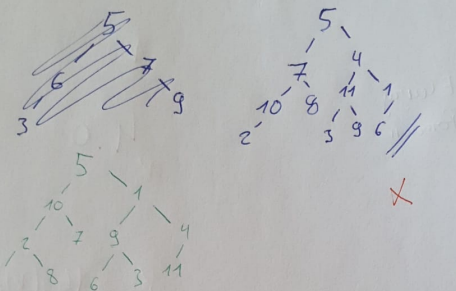 5
6 7
3 9
5
7 4
10 8 11 1
2 3 9 6
5
10 1
2 7 9 4
8 6 3 11